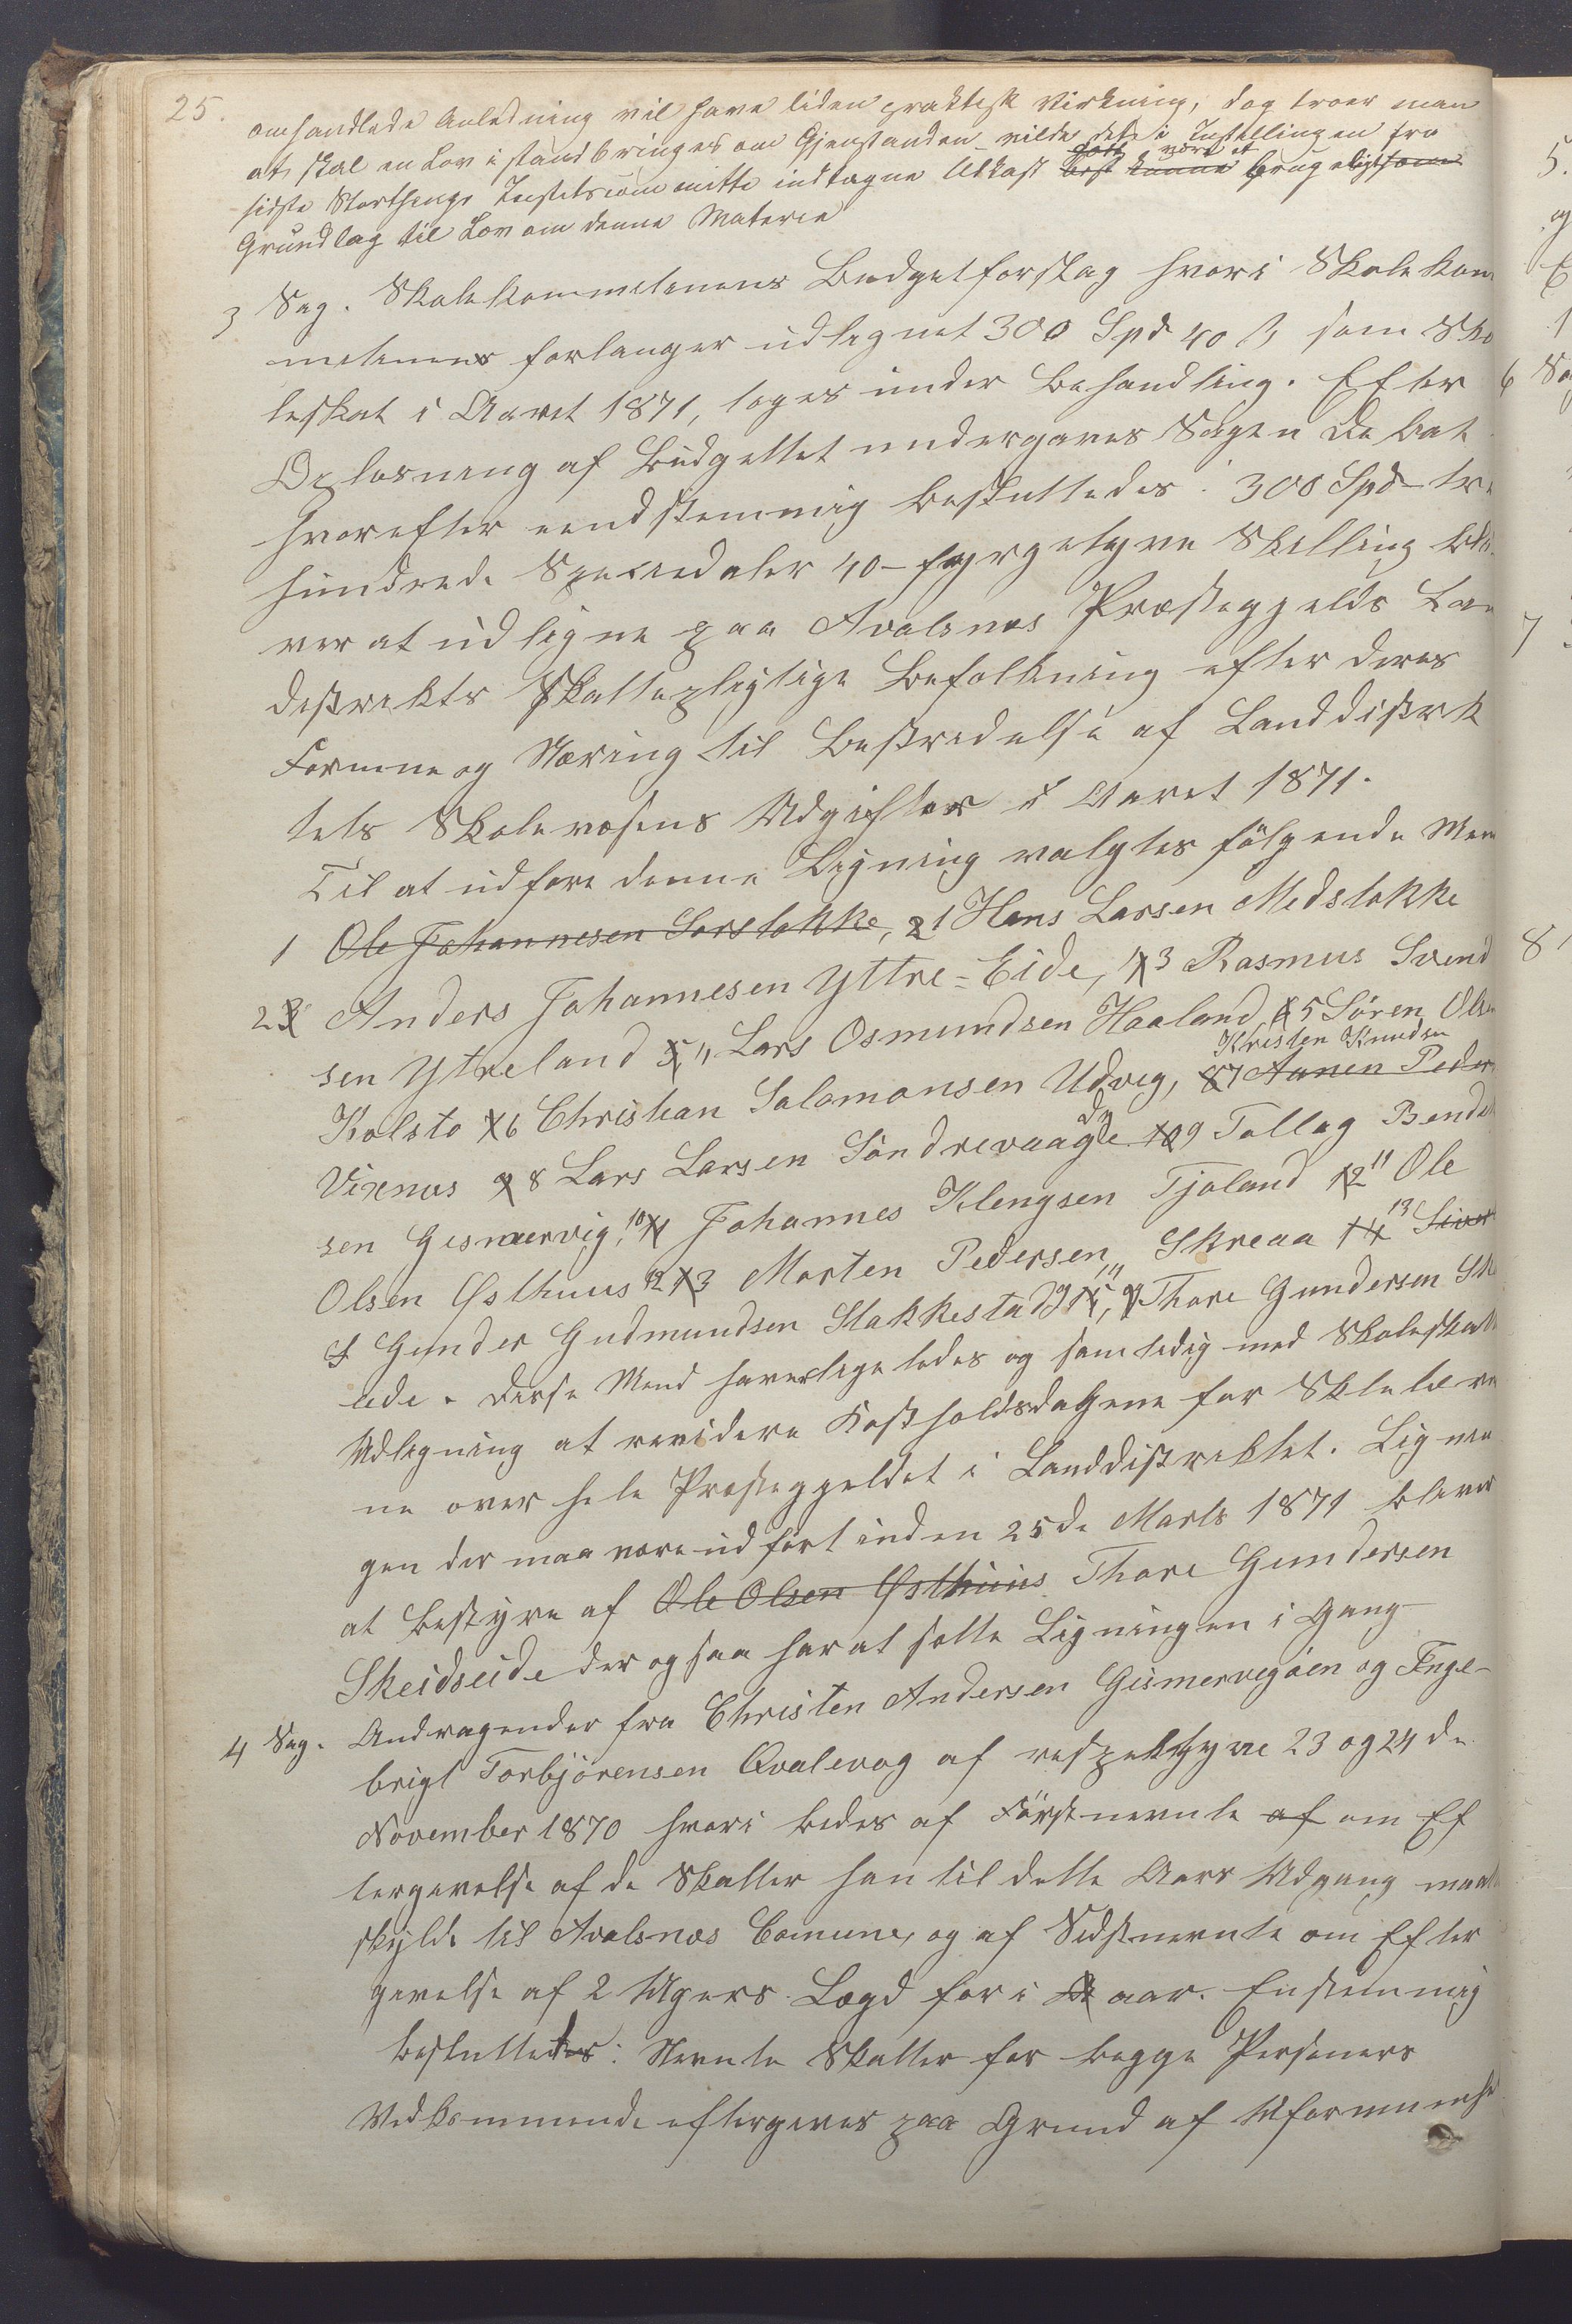 25.
omhandlede Anledning vil have liden praktisk Virkning, dog troer man
at, skal en Lov istandbringes om Gjenstanden vilde det i Instillingen fra
godt være et
sidste Storthings committe indtagne Udkast best kunne brugeligt som
Grundlag til Lov om denne Materie
3 Sag. Skolekommisionens Budgetforslag hvori Skolekom
misionens forlanger udlignet 300 Spd 40 ß som Sko
leskat i Aaret 1871, toges under Behandling. Efter
Oplæsning af Budgettet undergaves Sagen Debat
hvorefter eendstemmig besluttedes: 300 Spd tre
hundrede Speciedaler 40 - fyrgetyve Skilling bli
ver at udligne paa Avalsnes Præstegjelds Lan
distrikts Skattepligtige Befolkning efter deres
Formue og Næring til Bestridelse af Landdistrik
tets Skolevæsens Udgifter i Aaret 1871.
Til at udføre denne Ligning valgtes følgende Men
1 Ole Johannesen Sørstokke, 2 1 Hans Larsen Medstokke
2 3 Anders Johannesen Yttre-Eide, 4 3 Rasmus Svend
sen Ytreland 5 4 Lars Osmundsen Haaland 6 5 Sören Olsen
Kristen Knudsen
Kolstø 7 6 Christian Salamonsen Udvig, 8 7 Aanen Peder
Vixenes 9 8 Lars Larsen Söndrevaage 10 9 Tollag Bendik
sen Gismervig, 10 11 Johannes Klengsen Tjøland 12 11 Ole
Olsen Østhuus 12 13 Morten Pedersen Skreaa 14 13 Sivert
Gunder Gudmundsen Stakkestad 15 14, Thore Gundersen Ske
ede. Disse Mend haver ligeledes og samtidig med Skoleskat
Udligning at revidere Kostholdsdagene for Skolelærer
ne over hele Præstegjeldet i Landdistriktet. Lignin
gen der maa være udført inden 25de Marts 1871 bliver
at bestyre af Ole Olsen Østhuus Thore Gundersen
Skeidseide der ogsaa har at sætte Ligningen i Gang
4 Sag. Andragender fra Christen Andersen Gismervigøen og Enge-
brigt Torbjörensen Qvalevog af respektyve 23 og 24de
November 1870 hvori bedes af Förstnevnte af om Ef
tergivelse af de Skatter han til dette Aars Udgang maatte
skylde til Avalsnes Comune, og af Sidstnevnte om Efter
givelse af 2 Ugers Lægd for i aar. Enstemmig
besluttedes: Nevnte Skatter for begge Personers
Vedkommende eftergives paa Grund af Uformuenhed
5.
og
1
6 Sag
7
8